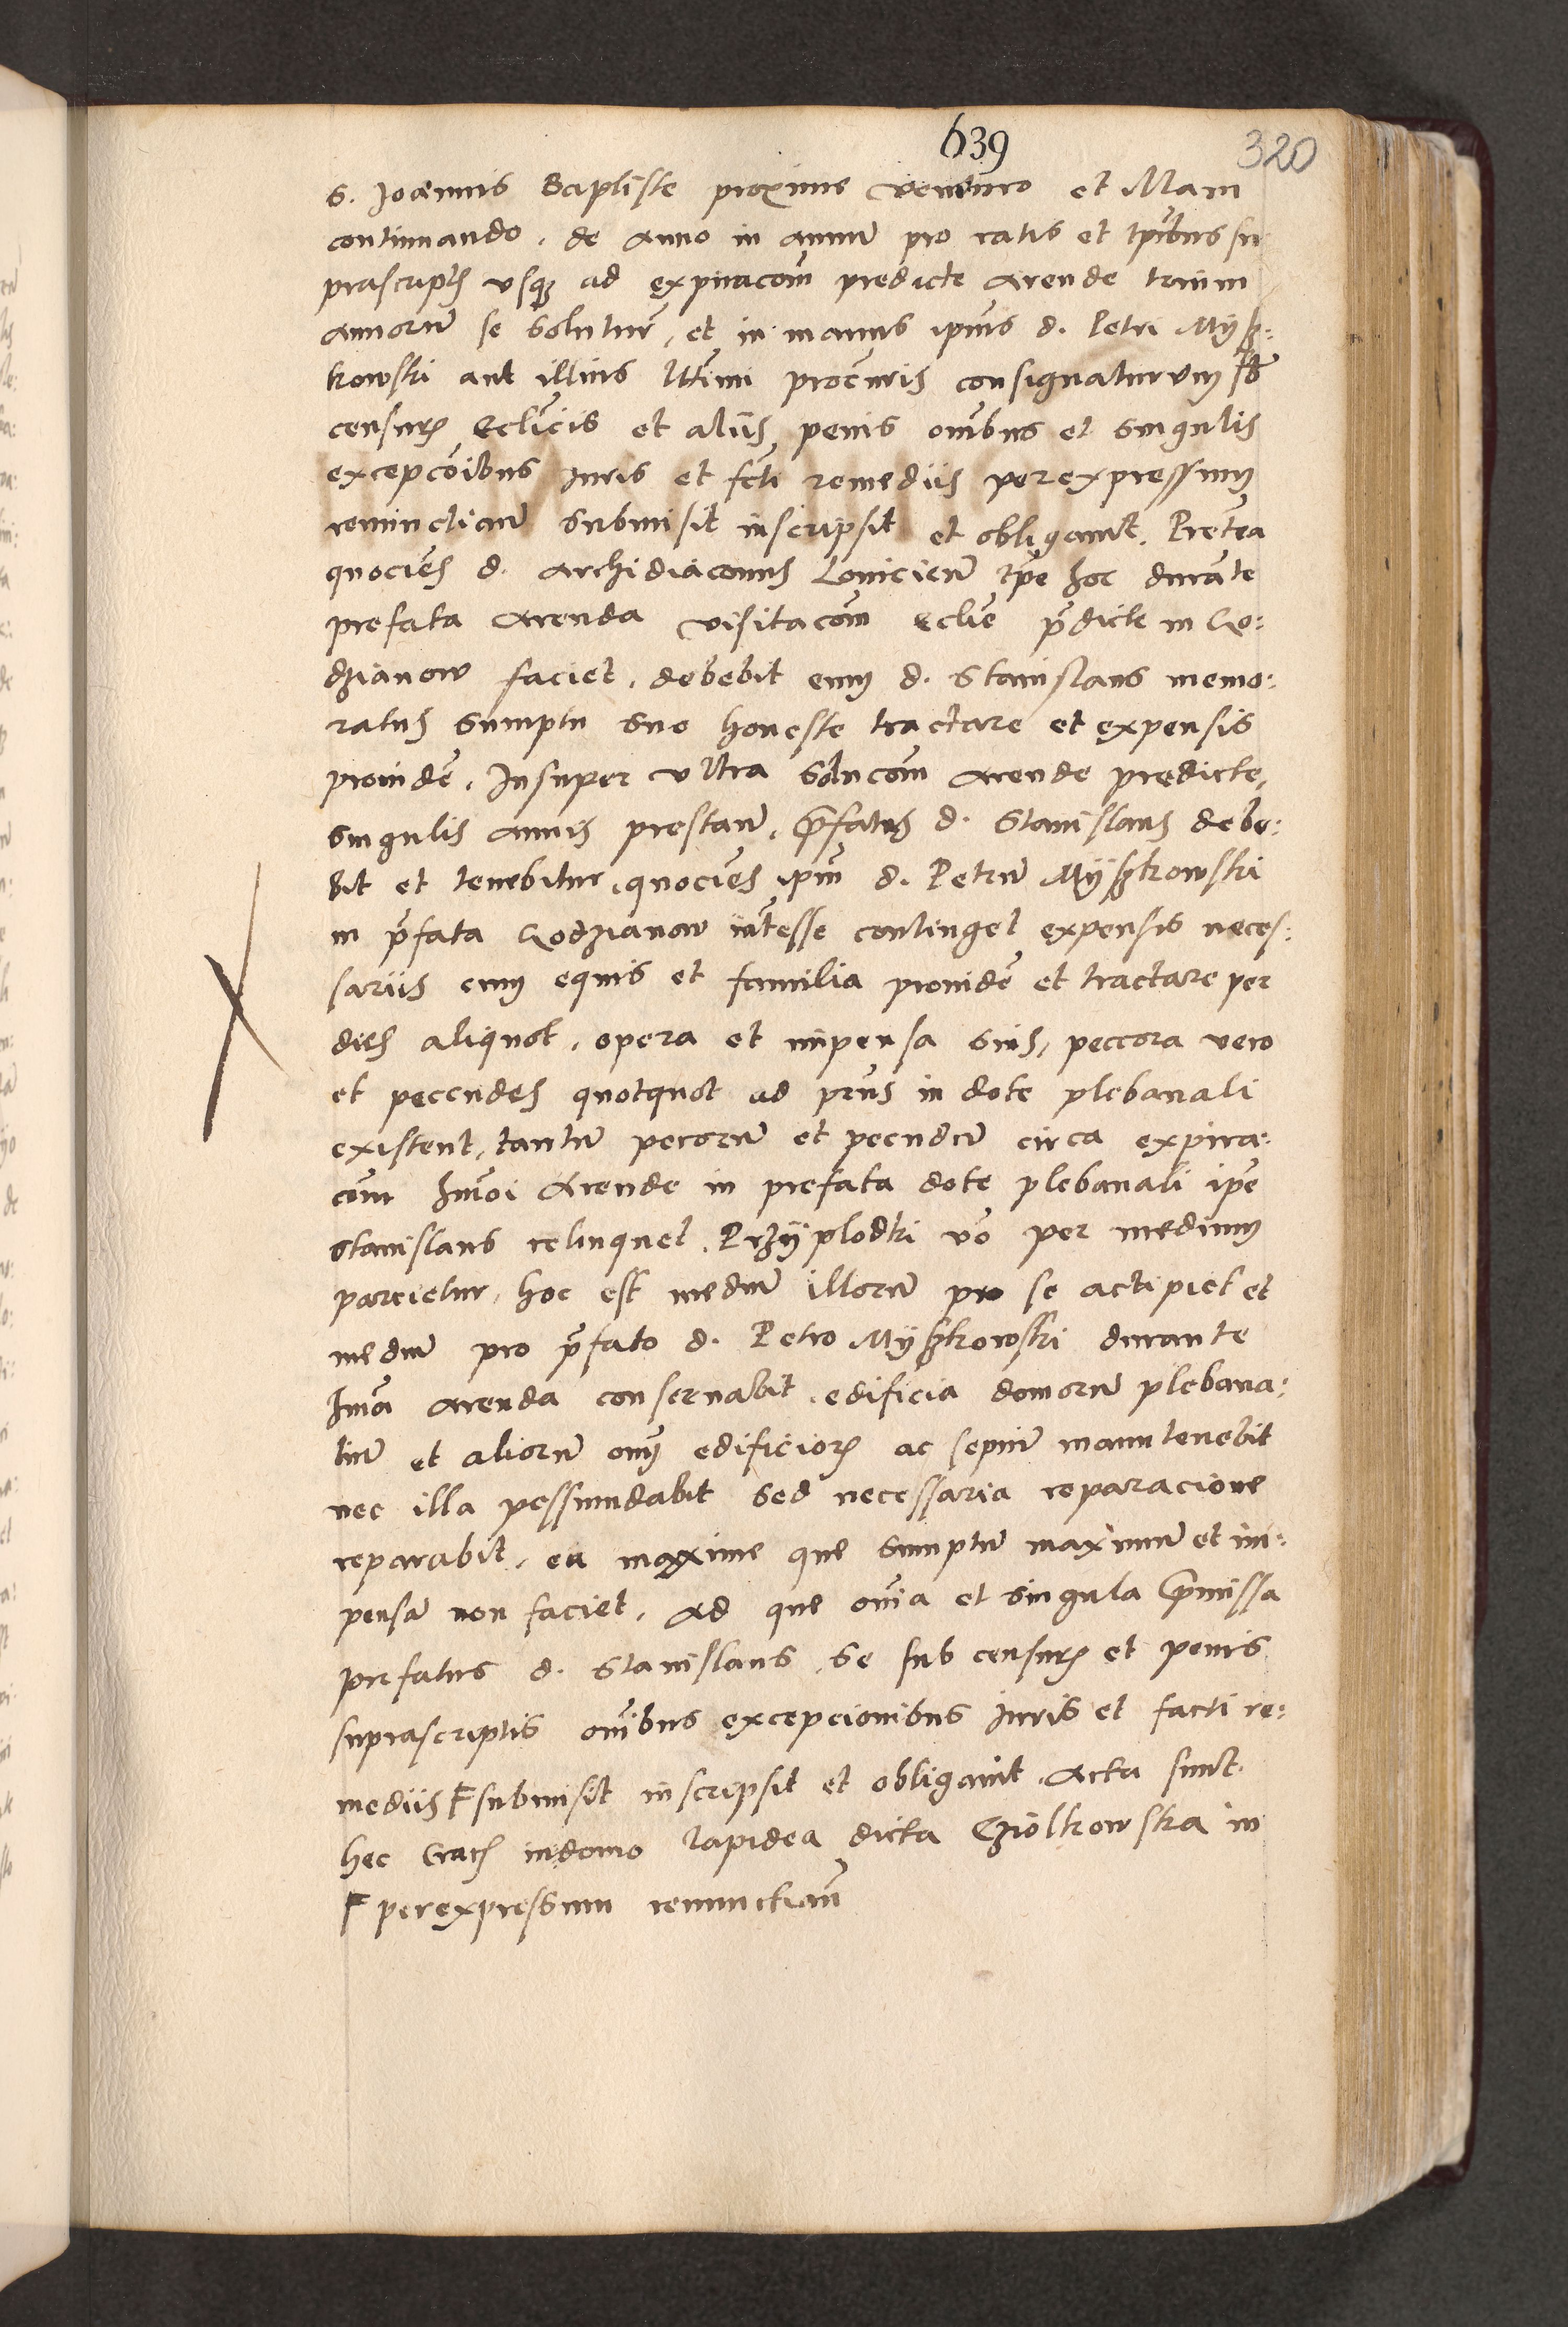 639
320
S. Joannis Baptiste proxime venturo et illam
continuando, de anno in annum pro ratis et tp̄ibus su
prascriptis usq3 ad expiracōm predicte arende trium
annorum se soluturū, et in manus ipius d. Petri Mÿsz:
kowski aut illius lttimi procuris consignaturum sb
censuris Eccliticis et alijs penis oīnibus et singulis
excepcōibus Juris et fcti remedijs per expressum
renunctiatum submisit inscripsit et obligavit. Pretea
quociens d. Archidiaconus Lovicien̄ tpe hoc durāte
prefata arenda visitacōm Ecclie p̄dicte in Go:
dzianow faciet, debebit eum d. Stanislaus memo:
ratus sumptu suo honeste tractare et expensis
providē. Insuper ultra solucōm arende predicte,
singulis annis prestandā, p̄fatus d. Stanislaus debe:
bit et tenebitur, quociens ip̄m d. Petrum Mÿszkowski
in p̄fata Godzianow int̄esse continget expensis neces:
sariis eum equis et familia providē et tractare per
dies aliquot, opera et impensa suis, peccora vero
et pecudes quotquot ad pn̄s in dote plebanali
existent, tantum pecorum et pecudum circa expira:
cōm hmōi arende in prefata dote plebanali ipe
Stanislaus relinquet. Przÿplodki vo per medium
parcietur, hoc est medium illorum pro se accipiet et
medium pro p̄fato d. Petro Mÿszkowski durante
hmōi arenda conservabit, edificia domorum plebana:
lium et aliorum oīm edificiorum ac sepium manutenebit
nec illa pessundabit sed necessaria reparacione
reparabit, ea maxime que sumptum maximum et im:
pensam non faciet. Ad que oīnia et singula p̄missa
prefatus d. Stanislaus, se sub censuris et penis
suprascriptis oīnibus excepcionibus Juris et facti re:
mediis Ⱶ submisit inscripsit et obligavit. Acta sunt
hec Crac̄ in domo lapidea dicta Cziolkowska in
Ⱶ per expressum renunctiatm̄